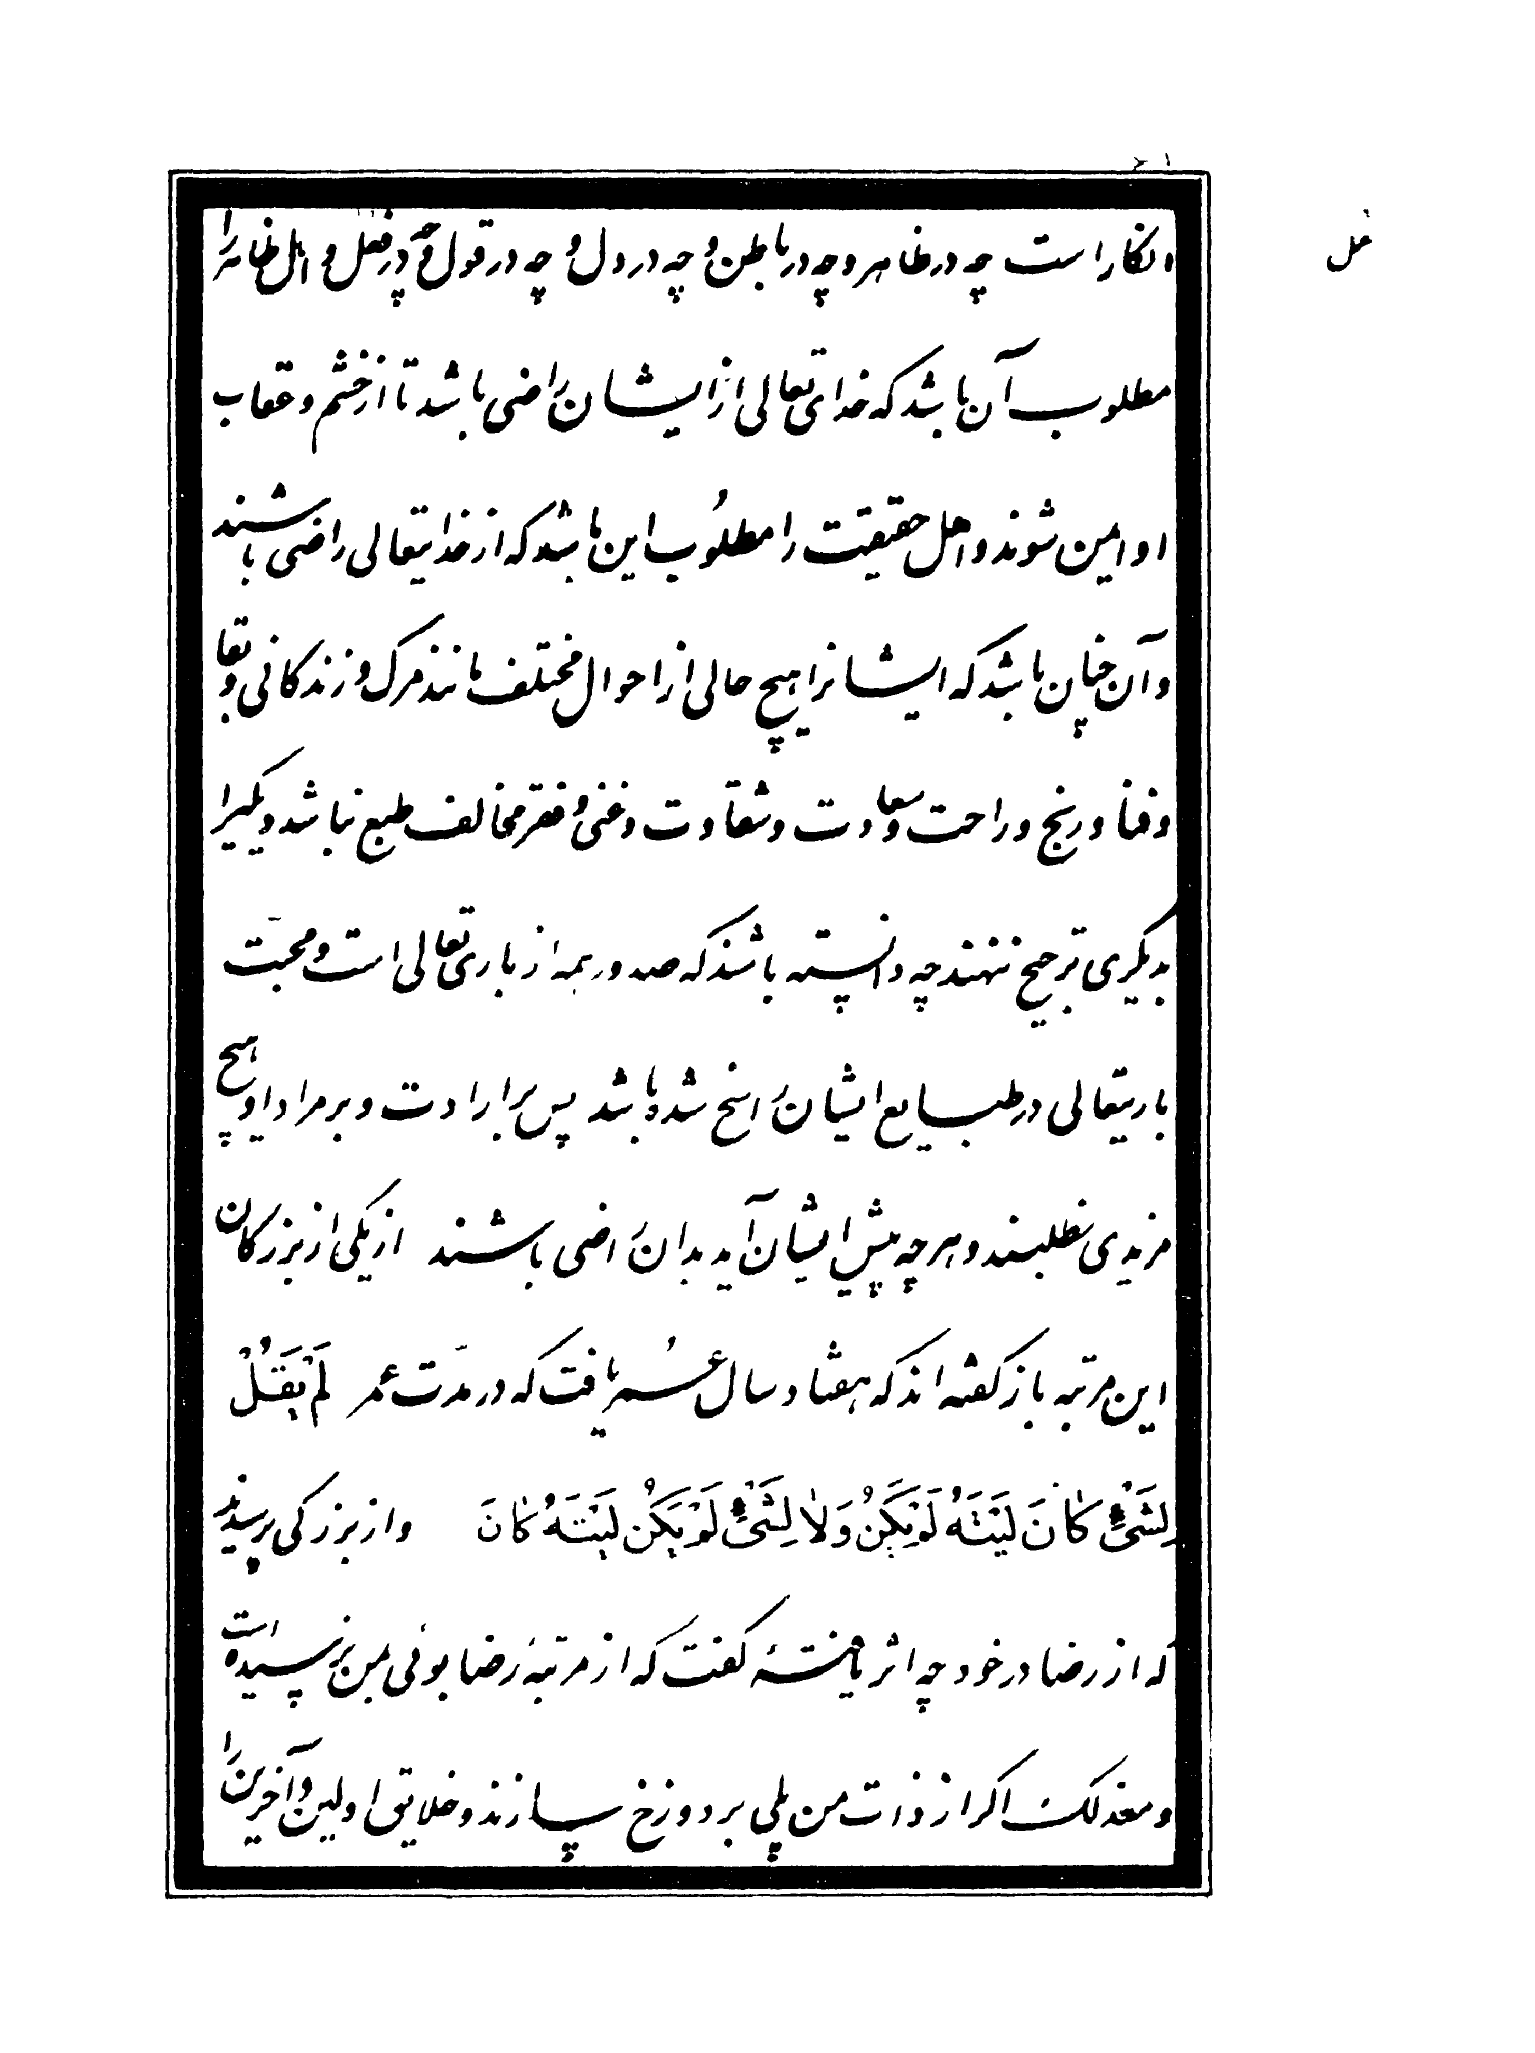 انکار است چه در ظاهر و چه در باطن و چه در دل و چه در قول و چه در فعل و اهل ظاهر را
مطلوب آن باشد که خدای تعالی از ایشان راضی باشد تا از خشم و عقاب
او ایمن شوند و اهل حقیقت را مطلُوب این باشد که از خدایتعالی راضی باشند
و آن چنان باشد که ایشانرا هیچ حالی از احوال مختلف مانند مرک و زندکانی و بقا
و فنا و رنج و راحت و سعادت و شقاوت و غنی و فقر مخالف طبع نباشد و یکیرا
بدیکری ترجیح ننهند چه دانسته باشند که صدور همه از باری تعالی است و محبّت
باریتعالی در طبایع ایشان راسخ شده باشد پس بر ارادت و بر مراد او هیچ
مزیدی نطلبند و هرچه پیش ایشان آید بدان راضی باشند از یکی از بزرکان
این مرتبه باز کفته اند که هفتاد سال عُمر یافت که در مدّت عمر لَمْ یَقُلْ
لِشَیْءٍ کانَ لَیْتَهُ لَمْ یَکُنْ وَلا لِشَیْءٍ لَمْ یَکُنْ لَیْتَهُ کانَ و از بزرکی پرسیدند
که از رضا در خود چه اثر یافتهٔ کفت که از مرتبهٔ رضا بوئی بمن نرسیده است
و معذلک اکر از ذات من پلی بر دوزخ سازند و خلایق اولین و آخرین را